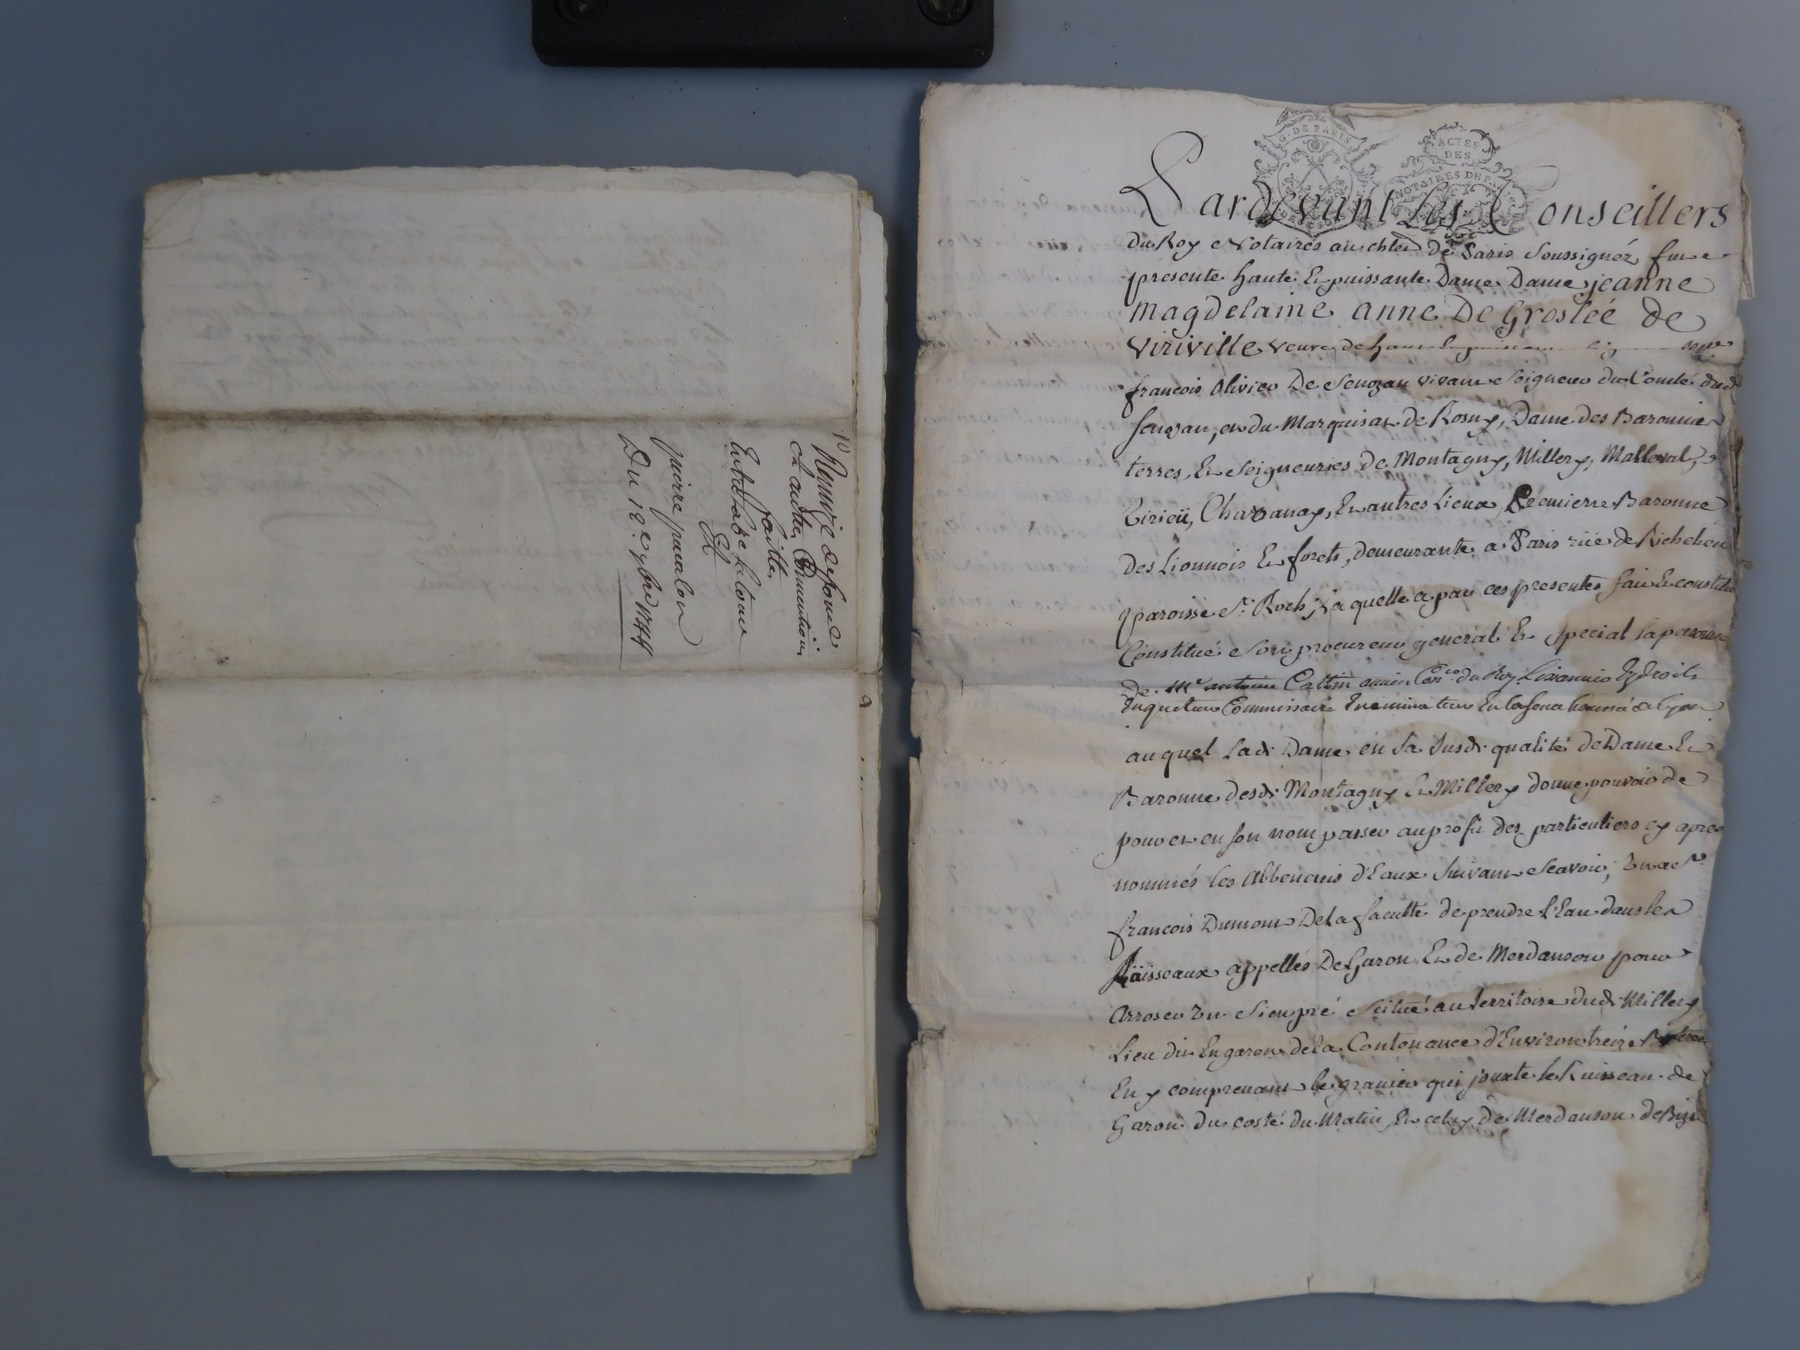 Remise de fond
et autre Convention
faitte
Entre
Et
pierre
Du 18e xbre 1744
G. DE PARIS
ACTES
DES
NOTAIRES DE P
Pardevant Les Conseillers
du Roy Notaires au chlet de Paris Soussignéz fut
presente haute Et puissante Dame Dame jeanne
Magdelaine anne De Groslée de
Viriville veuve de haut Et puissant
françois Olivier De Senozan vivant Seigneur du Comté dud
Senozan, et du Marquisat de Rosny, Dame des Baronnies
terres, Et Seigneuries de Montagny, Millery, Malleval,
Virieü, Chavanay, Et autres Lieux Premiere Baronne
des Lionnois Et forets, demeurante a Paris rüe de Richelieu
paroisse St. Roch; Laquelle a par ces presentes fait Et constitué
Constitué Son procureur general Et special la personne
de Me antoine Cattin ancien Conr. du Roy
Enqueteur Commissaire Examinateur En la Senechaussée de Lyon
auquel Lad. Dame en Sa Susd. qualité de Dame Et
Baronne desd. Montagny Et Millery donne pouvoir de
pour et en Son nom passer au profit des particuliers cy apres
nommés les Albenevis d'Eaux Suivant Scavoir; Un a Sr.
françois Dumont De la faculté de prendre l'Eau dans les
Ruisseaux appellés De Garon, Et de Merdanson pour
Arroser Un Sien pré Scitué au territoire dud. Millery
Lieu dit En garon de la Contenance d'Environ treize
En y comprenant le gravier qui jouxte le Ruisseau de
Garon du costé du Matin, Et celuy de Merdanson de Bize